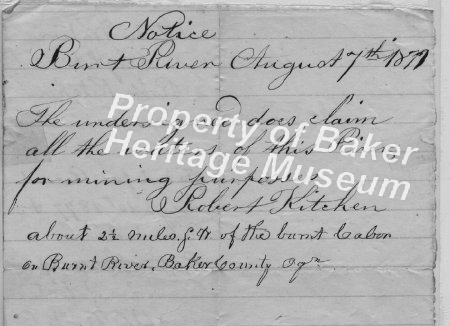 Notice
Burnt River August 7th 1877
The undersigned does claim
all the waters of this River
for mining purposes
Robert Kitchen
about 2½ miles of the burnt Cabon
on Burnt River. Baker County Ogn.
Property of Baker
Heritage Museum